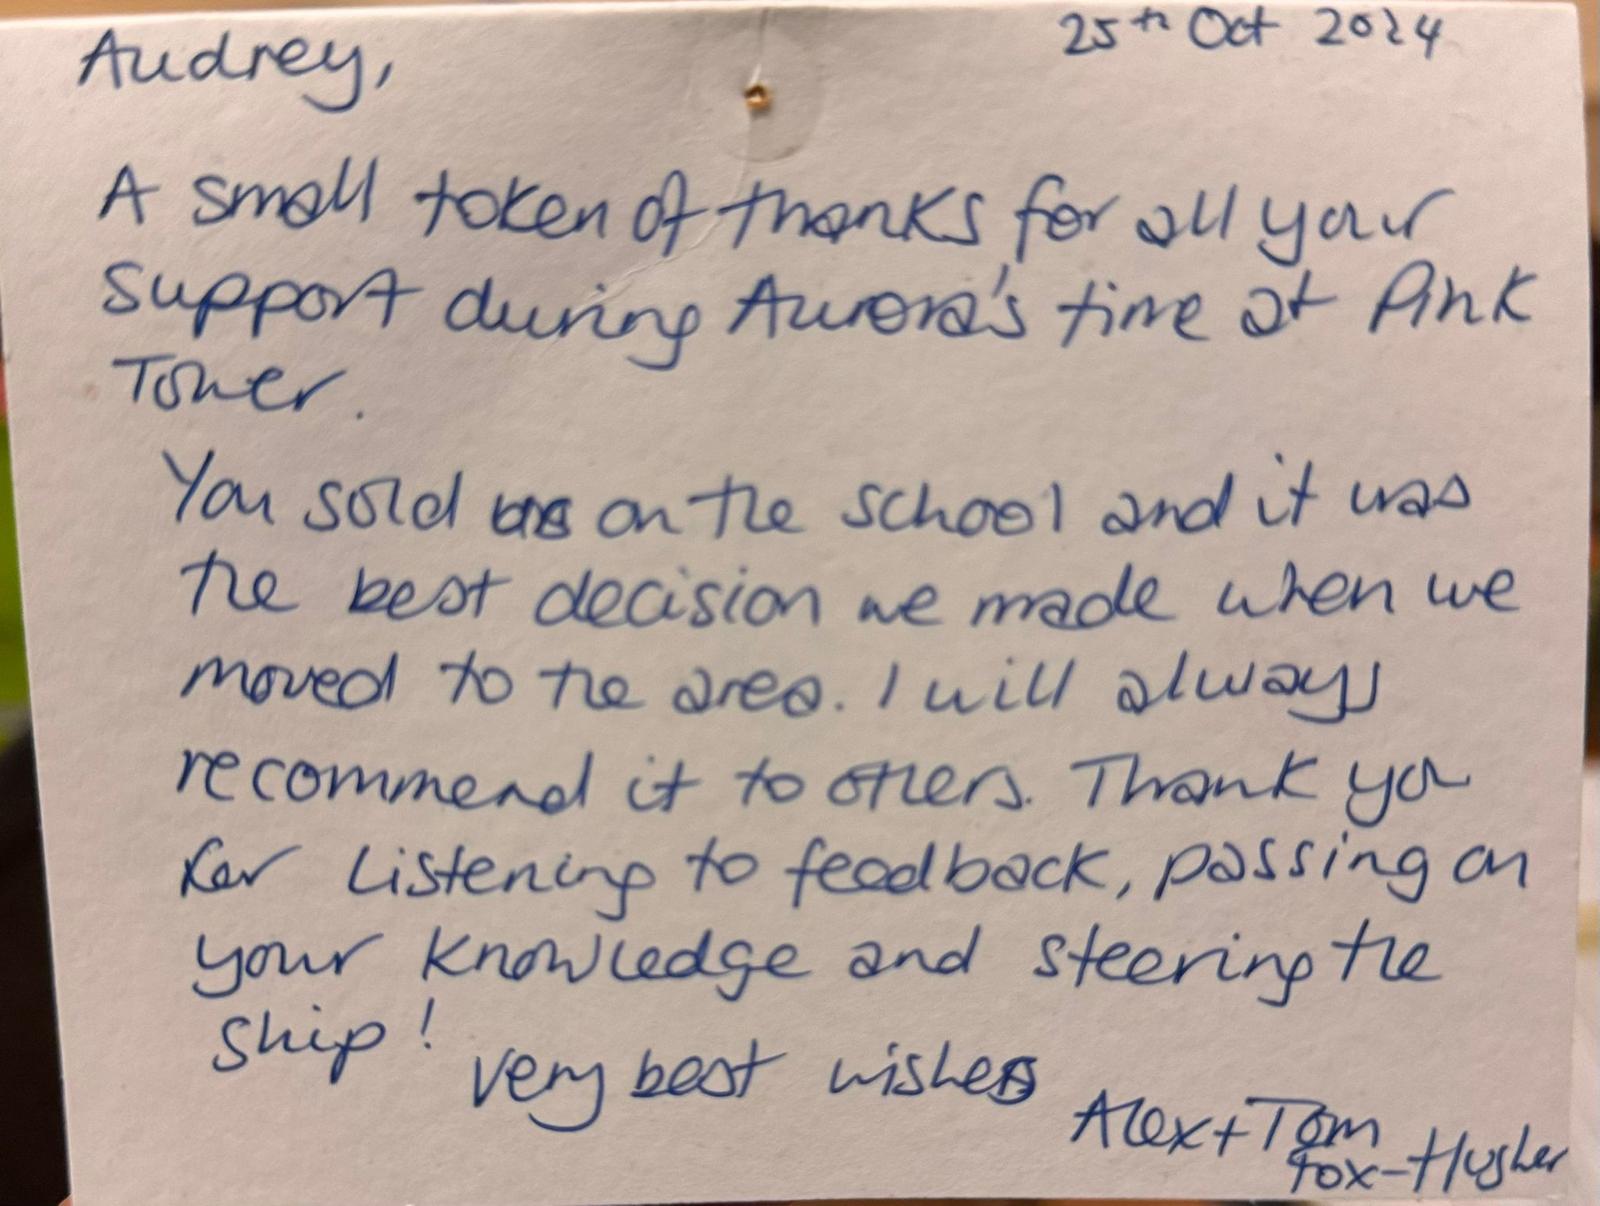 Audrey,
25th Oct 2024
A small token of thanks for all your
support during Aurora's time at Pink
Tower.
You sold us on the school and it was
the best decision we made when we
moved to the area. I will always
recommend it to others. Thank you
for listening to feedback, passing on
your knowledge and steering the
ship!
Very best wishes
Alex + Tom
Fox-Husher